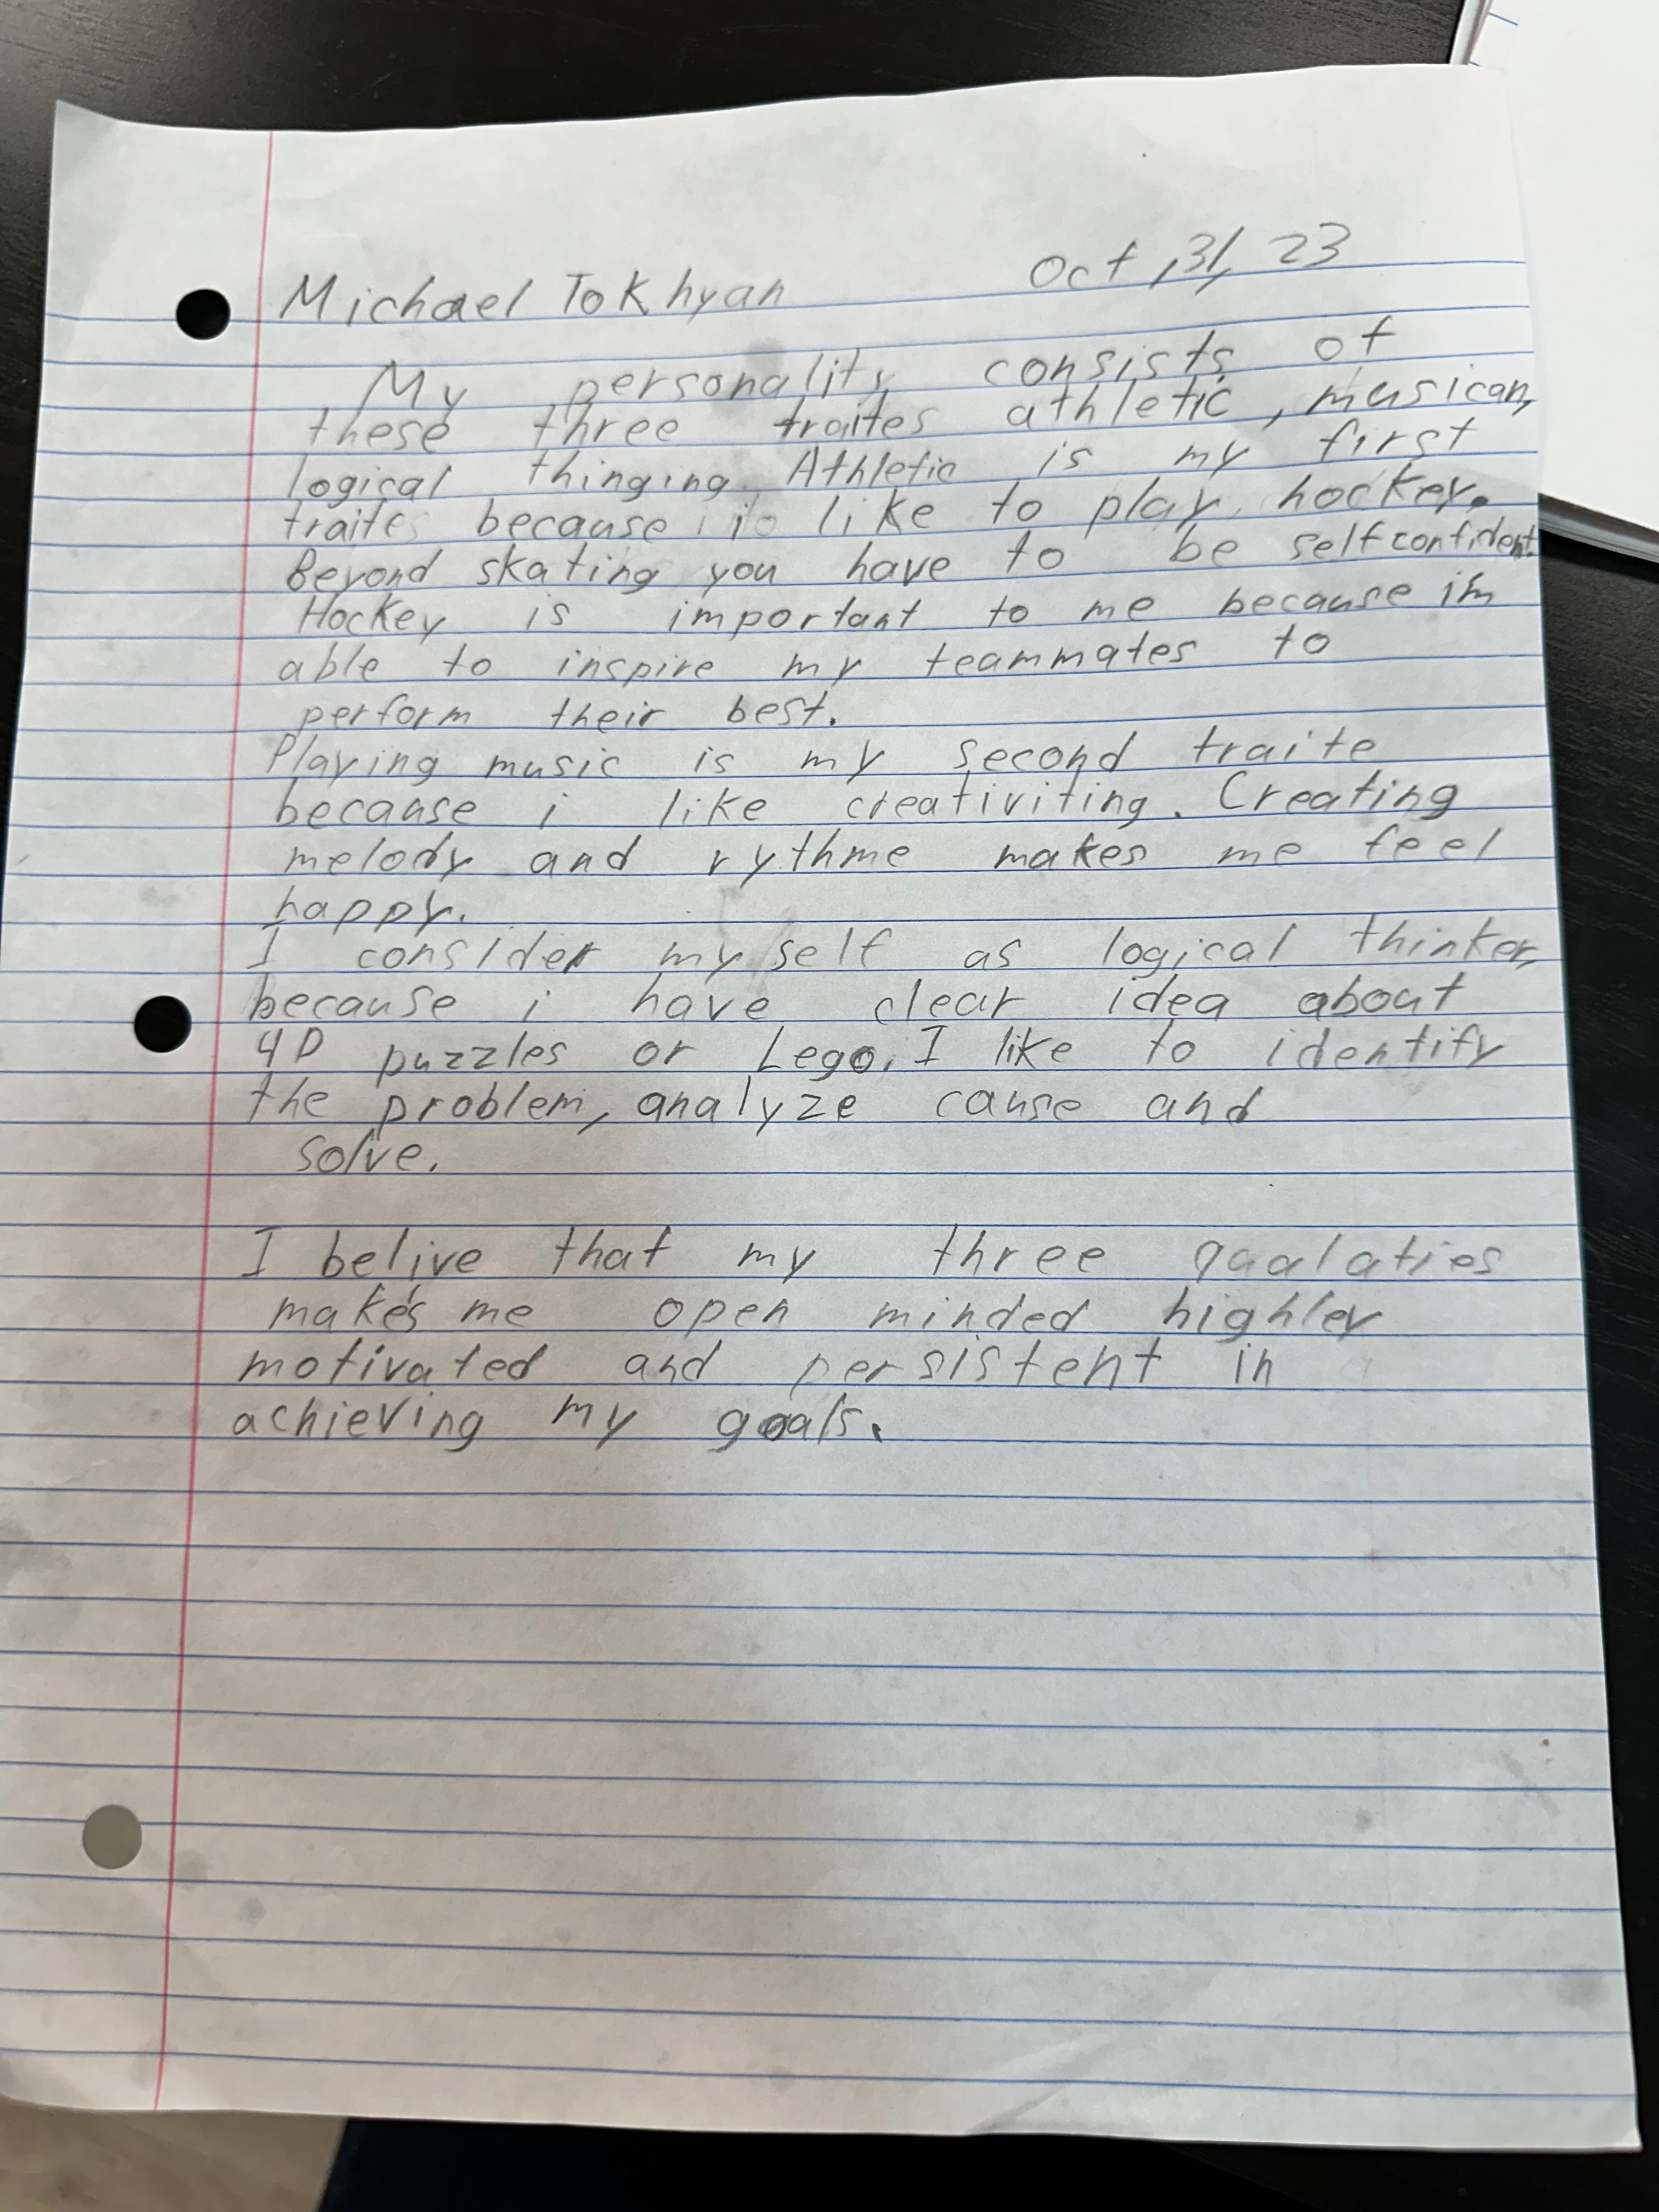 Michael Tokhyan Oct, 31, 23
My personality consists of
these three traites athletic, musican,
logical thinging. Athletic is my first
traites because i like to play hockey.
Beyond skating you have to be selfconfident.
Hockey is important to me because i'm
able to inspire my teammates to
perform their best.
Playing music is my second traite
because i like creativiting. Creating
melody and rythme makes me feel
happy.
I consider my self as logical thinker,
because i have clear idea about
4D puzzles or Lego. I like to identify
the problem, analyze cause and
solve.
I belive that my three qualaties
makes me open minded highley
motivated and persistent in
achieving my goals.